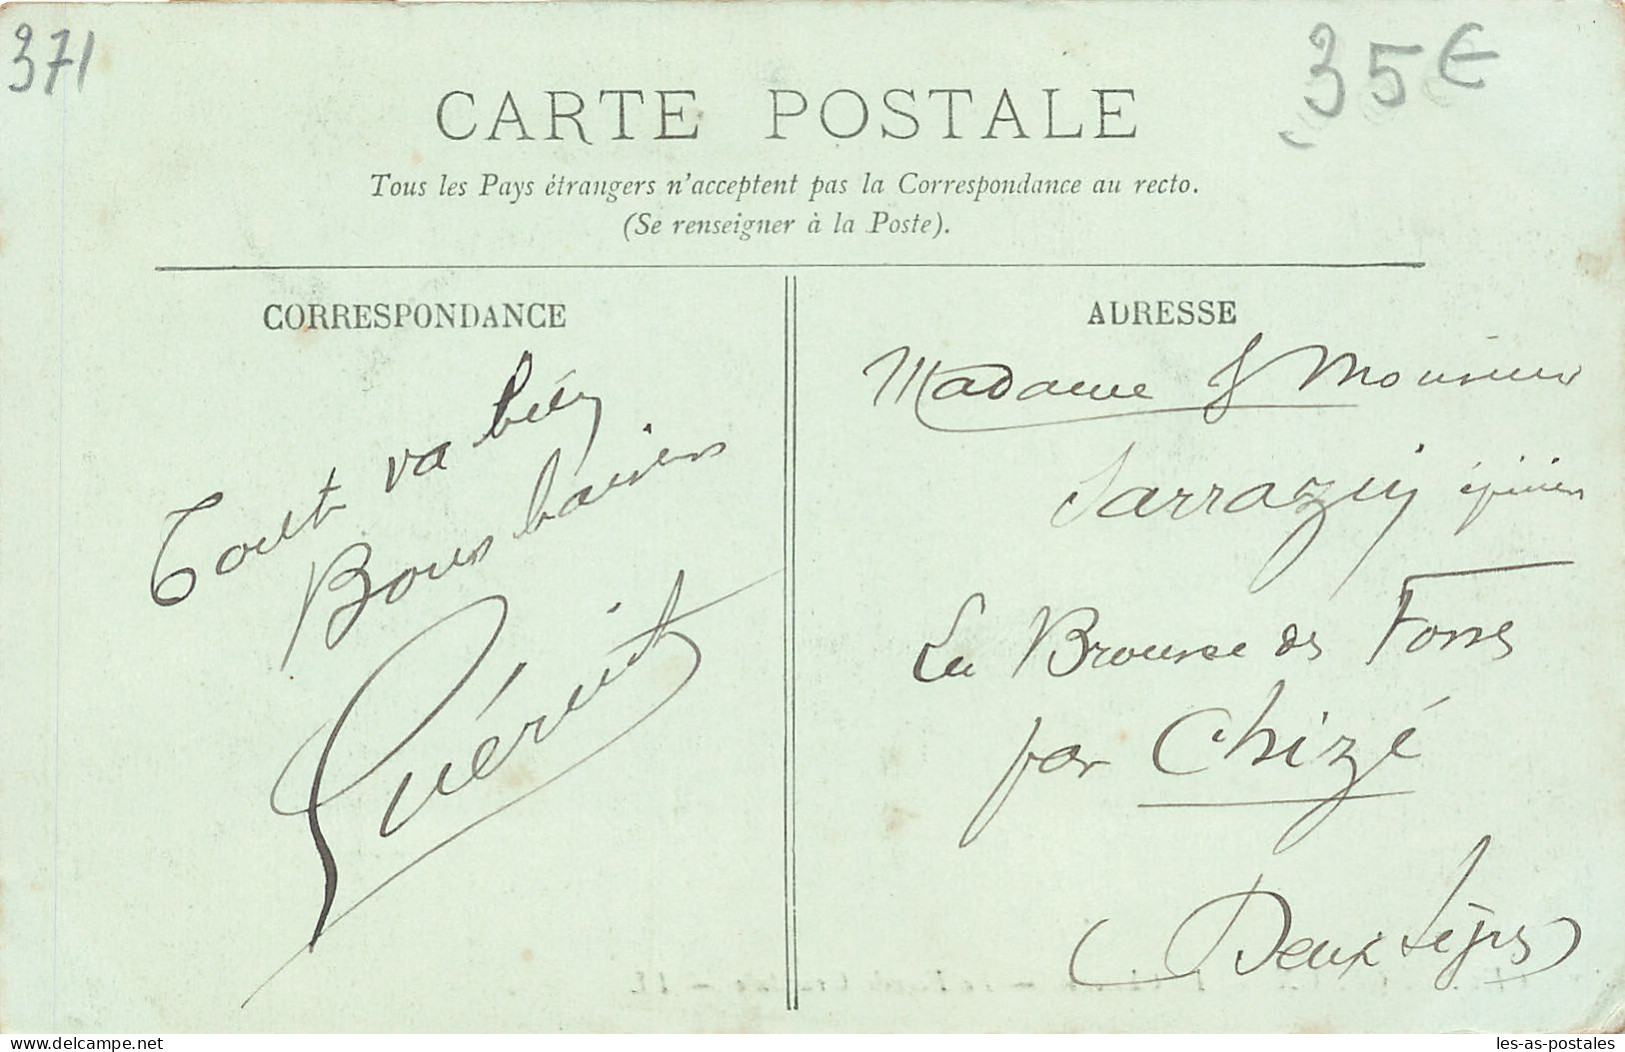 371
35€
CARTE POSTALE
Tous les Pays étrangers n'acceptent pas la Correspondance au recto.
(Se renseigner à la Poste).
CORRESPONDANCE
Tout va bien
Bons baisers
Guérint
ADRESSE
Madame & Monsieur
Sarrazin épicier
La Brousse des Fosses
par Chizé
(Deux Sèvres)
delcampe.net
les-as-postales